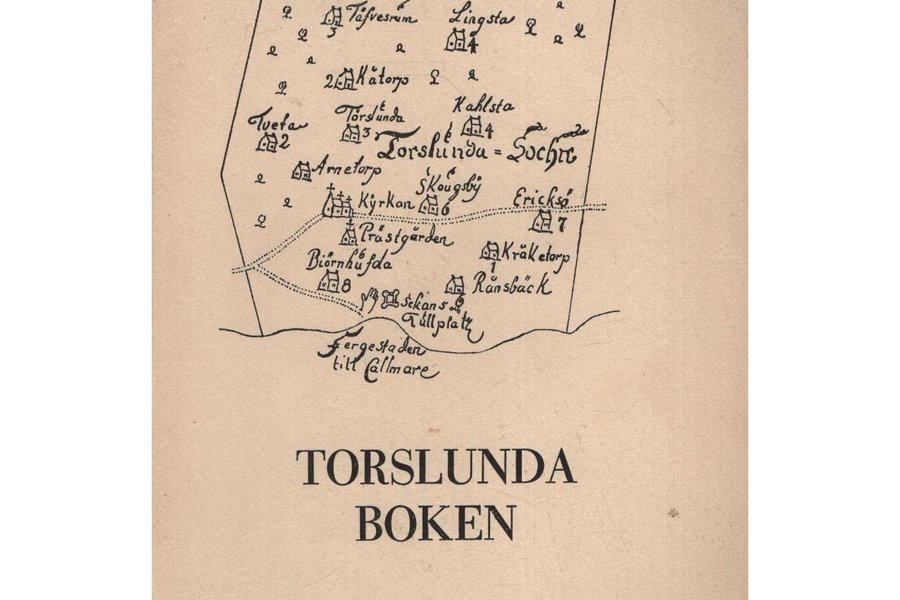 Tåfvesrum
3
Lingsta
4
2 Kåtorp
Tveta
2
Torslunda
3
Kahlsta
4
Torslunda = Sochn
Arnetorp
Skougsby
6
Kyrkan
Ericksö
7
Prästgården
Kråketorp
1
Biörnhufda
8
Rånsbäck
6
Sckans
Tullplatz
Fergestaden
till Callmare
TORSLUNDA
BOKEN